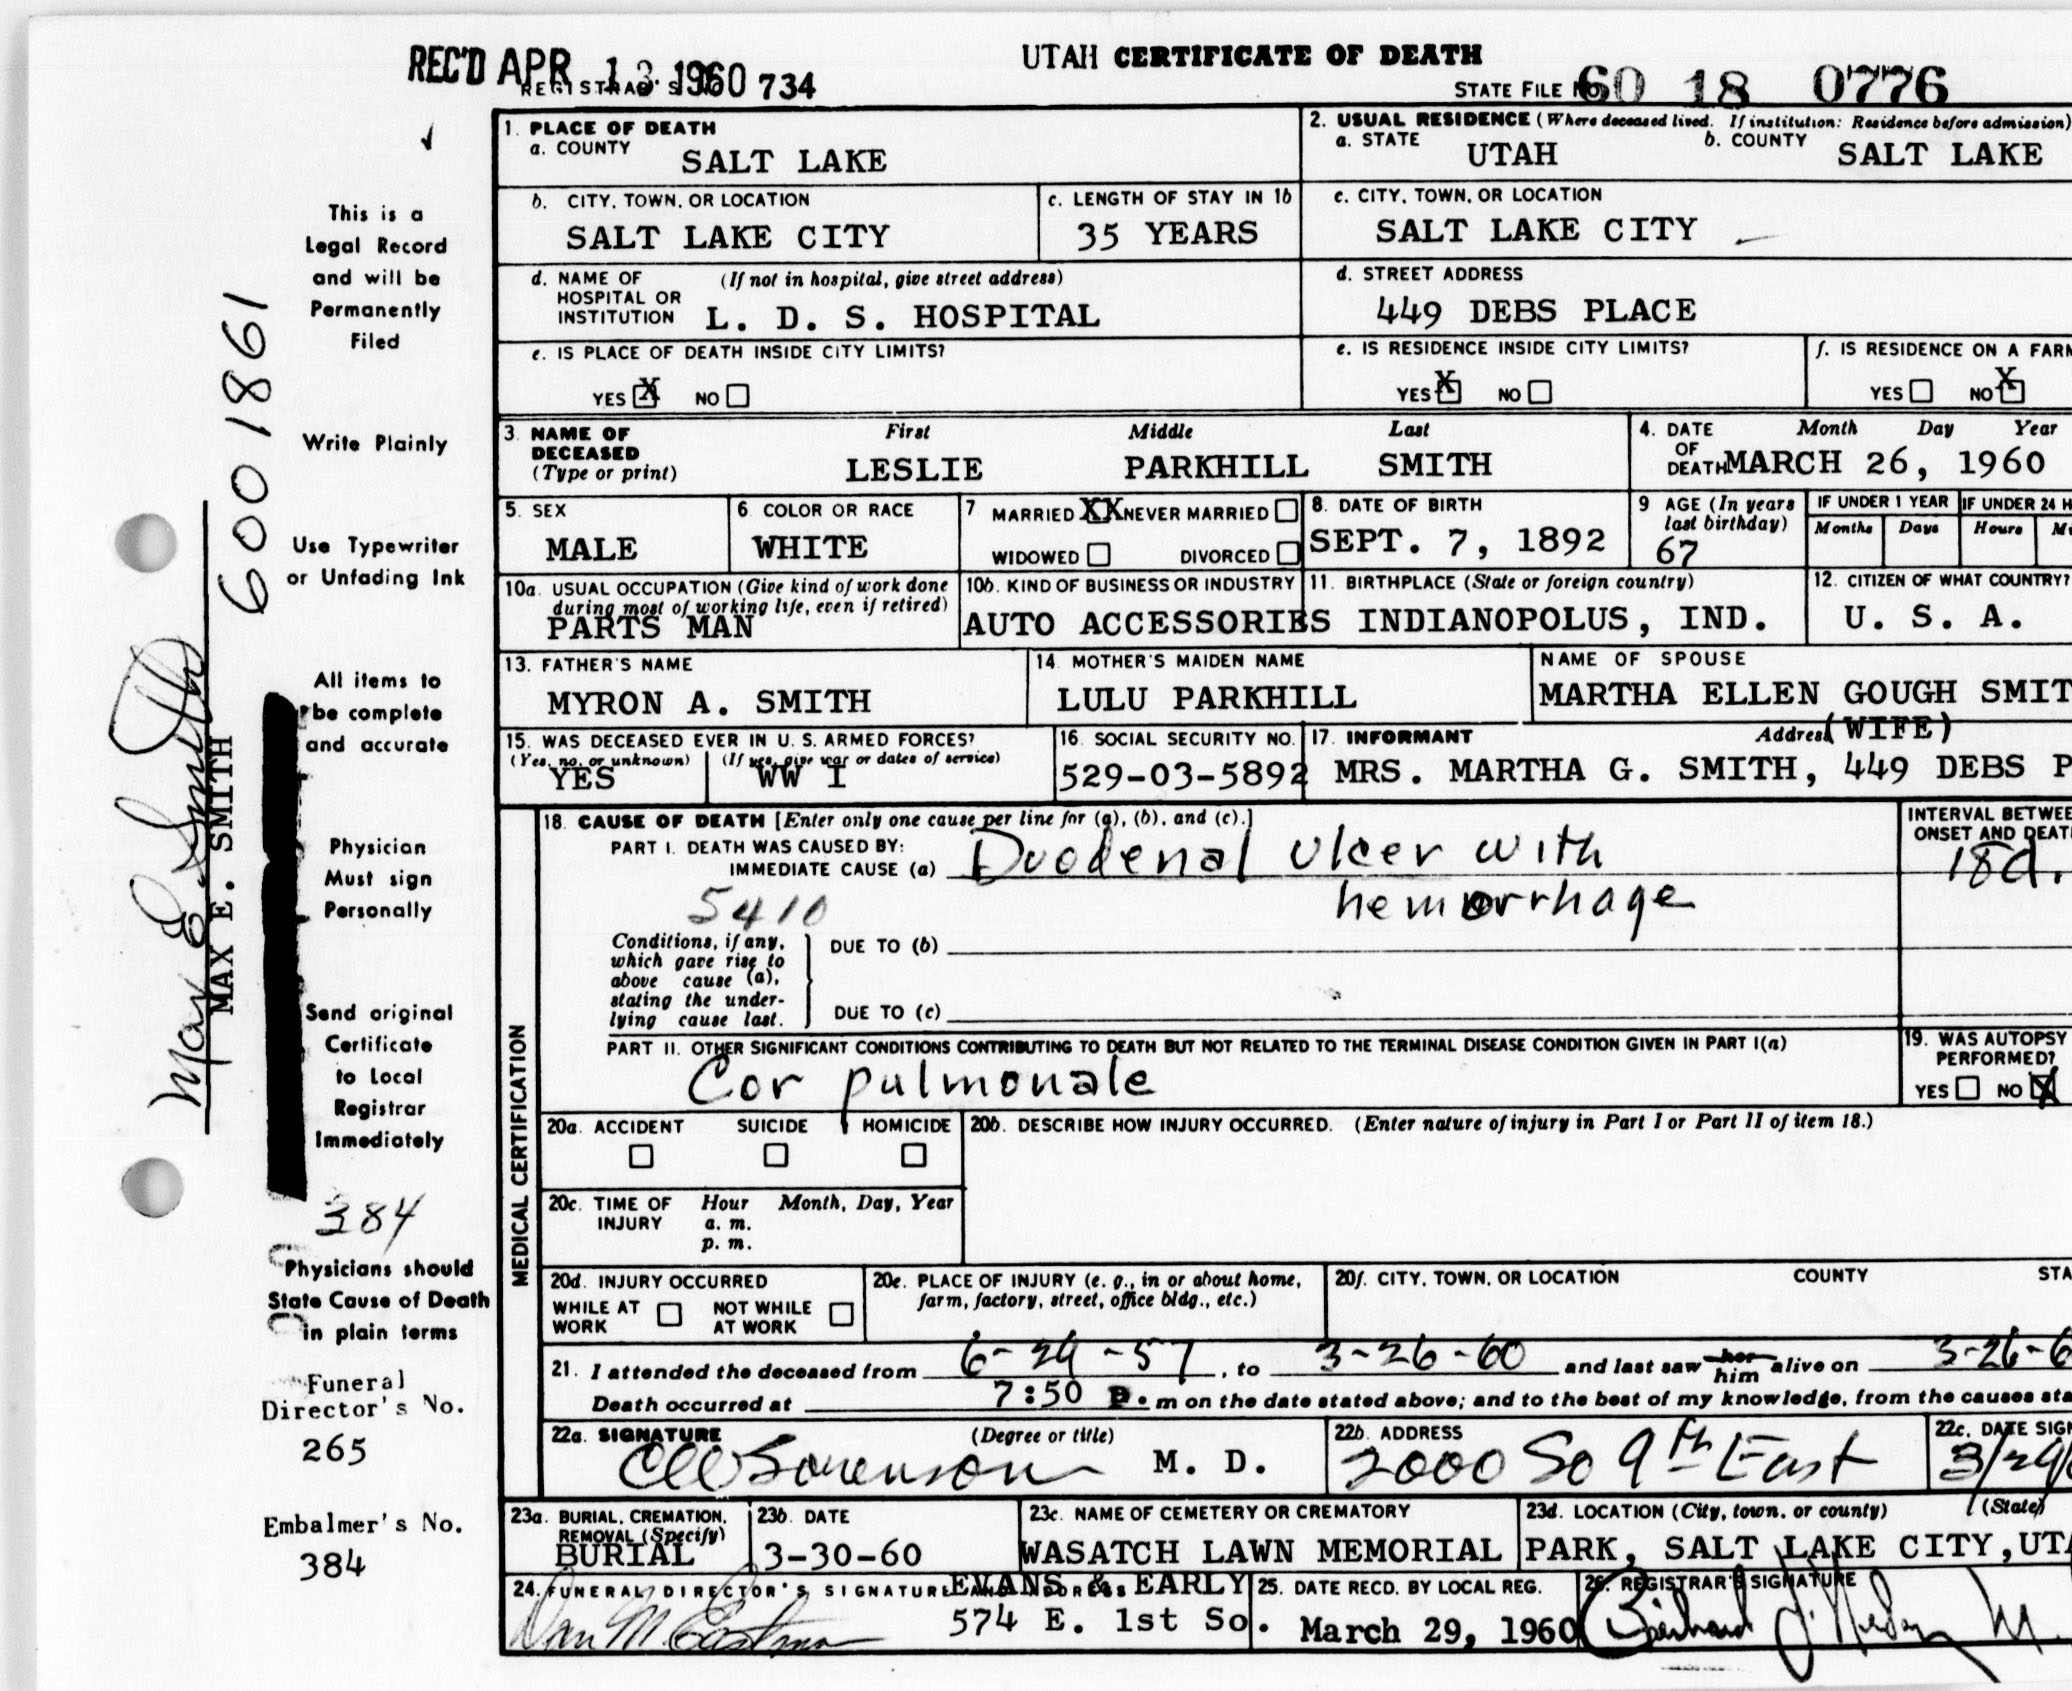 REC'D APR 13 1960
REGISTRAR'S NO. 734
UTAH CERTIFICATE OF DEATH
STATE FILE NO. 60 18 0776
1. PLACE OF DEATH
a. COUNTY SALT LAKE
2. USUAL RESIDENCE (Where deceased lived. If institution: Residence before admission)
a. STATE UTAH b. COUNTY SALT LAKE
b. CITY, TOWN, OR LOCATION SALT LAKE CITY
c. LENGTH OF STAY IN 1b 35 YEARS
c. CITY, TOWN, OR LOCATION SALT LAKE CITY
d. NAME OF HOSPITAL OR INSTITUTION (If not in hospital, give street address) L. D. S. HOSPITAL
d. STREET ADDRESS 449 DEBS PLACE
e. IS PLACE OF DEATH INSIDE CITY LIMITS?
YES X NO
e. IS RESIDENCE INSIDE CITY LIMITS?
YES X NO
f. IS RESIDENCE ON A FARM
YES NO X
3. NAME OF DECEASED (Type or print)
First Middle Last
LESLIE PARKHILL SMITH
4. DATE OF DEATH Month Day Year
MARCH 26, 1960
5. SEX MALE
6. COLOR OR RACE WHITE
7. MARRIED XX NEVER MARRIED
WIDOWED DIVORCED
8. DATE OF BIRTH SEPT. 7, 1892
9 AGE (In years last birthday) 67
IF UNDER 1 YEAR Months Days
IF UNDER 24 H
Hours
10a. USUAL OCCUPATION (Give kind of work done during most of working life, even if retired)
PARTS MAN
10b. KIND OF BUSINESS OR INDUSTRY
AUTO ACCESSORIES
11. BIRTHPLACE (State or foreign country)
INDIANOPOLUS, IND.
12. CITIZEN OF WHAT COUNTRY?
U. S. A.
13. FATHER'S NAME
MYRON A. SMITH
14. MOTHER'S MAIDEN NAME
LULU PARKHILL
NAME OF SPOUSE
MARTHA ELLEN GOUGH SMIT
15. WAS DECEASED EVER IN U. S. ARMED FORCES?
(Yes, no, or unknown) (If yes, give war or dates of service)
YES WW I
16. SOCIAL SECURITY NO.
529-03-5892
17. INFORMANT Address (WIFE)
MRS. MARTHA G. SMITH, 449 DEBS P
MEDICAL CERTIFICATION
18. CAUSE OF DEATH [Enter only one cause per line for (a), (b), and (c).]
PART I. DEATH WAS CAUSED BY:
IMMEDIATE CAUSE (a) Duodenal ulcer with
hemorrhage
5410
INTERVAL BETWEE
ONSET AND DEAT
18d.
Conditions, if any, which gave rise to above cause (a), stating the underlying cause last.
DUE TO (b)
DUE TO (c)
PART II. OTHER SIGNIFICANT CONDITIONS CONTRIBUTING TO DEATH BUT NOT RELATED TO THE TERMINAL DISEASE CONDITION GIVEN IN PART I(a)
Cor pulmonale
19. WAS AUTOPSY PERFORMED?
YES NO X
20a. ACCIDENT SUICIDE HOMICIDE
20b. DESCRIBE HOW INJURY OCCURRED. (Enter nature of injury in Part I or Part II of item 18.)
20c. TIME OF INJURY Hour Month, Day, Year
a. m.
p. m.
20d. INJURY OCCURRED
WHILE AT WORK NOT WHILE AT WORK
20e. PLACE OF INJURY (e. g., in or about home, farm, factory, street, office bldg., etc.)
20f. CITY, TOWN, OR LOCATION COUNTY STA
21. I attended the deceased from 6-29-57, to 3-26-60 and last saw her him alive on 3-26-6
Death occurred at 7:50 P. m on the date stated above; and to the best of my knowledge, from the causes sta
22a. SIGNATURE (Degree or title)
Sorenson M. D.
22b. ADDRESS
2000 So 9th East
22c. DATE SIG
3/29/
23a. BURIAL, CREMATION, REMOVAL (Specify)
BURIAL
23b. DATE
3-30-60
23c. NAME OF CEMETERY OR CREMATORY
WASATCH LAWN MEMORIAL
23d. LOCATION (City, town, or county) (State)
PARK, SALT LAKE CITY, UTA
24. FUNERAL DIRECTOR'S SIGNATURE AND ADDRESS
EVANS & EARLY
574 E. 1st So.
25. DATE RECD. BY LOCAL REG.
March 29, 1960
26. REGISTRAR'S SIGNATURE
This is a
Legal Record
and will be
Permanently
Filed
Write Plainly
Use Typewriter
or Unfading Ink
All items to
be complete
and accurate
Physician
Must sign
Personally
Send original
Certificate
to Local
Registrar
Immediately
384
Physicians should
State Cause of Death
in plain terms
Funeral
Director's No.
265
Embalmer's No.
384
600 1861
Max E Smith
MAX E. SMITH